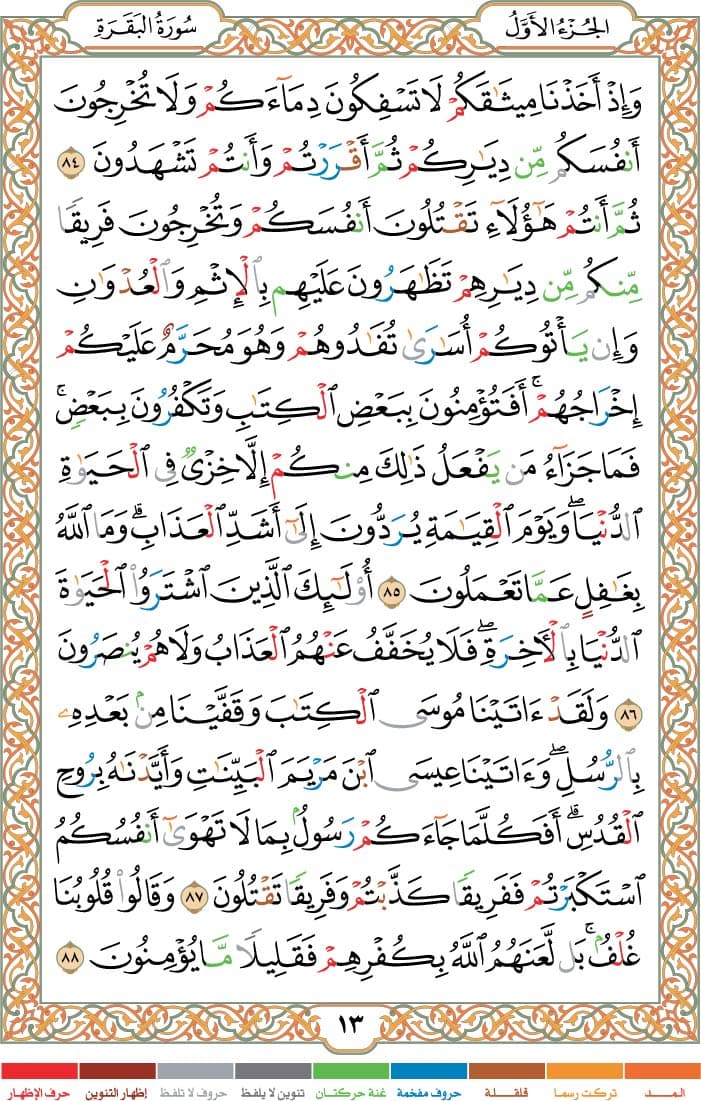 الجُزْءُ الأَوَّلُ
سُورَةُ البَقَرَةِ
وَإِذْ أَخَذْنَا مِيثَٰقَكُمْ لَا تَسْفِكُونَ دِمَآءَكُمْ وَلَا تُخْرِجُونَ
أَنفُسَكُم مِّن دِيَٰرِكُمْ ثُمَّ أَقْرَرْتُمْ وَأَنتُمْ تَشْهَدُونَ ٨٤
ثُمَّ أَنتُمْ هَٰٓؤُلَآءِ تَقْتُلُونَ أَنفُسَكُمْ وَتُخْرِجُونَ فَرِيقًا
مِّنكُم مِّن دِيَٰرِهِمْ تَظَٰهَرُونَ عَلَيْهِم بِٱلْإِثْمِ وَٱلْعُدْوَٰنِ
وَإِن يَأْتُوكُمْ أُسَٰرَىٰ تُفَٰدُوهُمْ وَهُوَ مُحَرَّمٌ عَلَيْكُمْ
إِخْرَاجُهُمْ ۚ أَفَتُؤْمِنُونَ بِبَعْضِ ٱلْكِتَٰبِ وَتَكْفُرُونَ بِبَعْضٍ ۚ
فَمَا جَزَآءُ مَن يَفْعَلُ ذَٰلِكَ مِنكُمْ إِلَّا خِزْىٌ فِى ٱلْحَيَوٰةِ
ٱلدُّنْيَا ۖ وَيَوْمَ ٱلْقِيَٰمَةِ يُرَدُّونَ إِلَىٰٓ أَشَدِّ ٱلْعَذَابِ ۗ وَمَا ٱللَّهُ
بِغَٰفِلٍ عَمَّا تَعْمَلُونَ ٨٥ أُو۟لَٰٓئِكَ ٱلَّذِينَ ٱشْتَرَوُا۟ ٱلْحَيَوٰةَ
ٱلدُّنْيَا بِٱلْـَٔاخِرَةِ ۖ فَلَا يُخَفَّفُ عَنْهُمُ ٱلْعَذَابُ وَلَا هُمْ يُنصَرُونَ
٨٦ وَلَقَدْ ءَاتَيْنَا مُوسَى ٱلْكِتَٰبَ وَقَفَّيْنَا مِنۢ بَعْدِهِۦ
بِٱلرُّسُلِ ۖ وَءَاتَيْنَا عِيسَى ٱبْنَ مَرْيَمَ ٱلْبَيِّنَٰتِ وَأَيَّدْنَٰهُ بِرُوحِ
ٱلْقُدُسِ ۗ أَفَكُلَّمَا جَآءَكُمْ رَسُولٌۢ بِمَا لَا تَهْوَىٰٓ أَنفُسُكُمُ
ٱسْتَكْبَرْتُمْ فَفَرِيقًا كَذَّبْتُمْ وَفَرِيقًا تَقْتُلُونَ ٨٧ وَقَالُوا۟ قُلُوبُنَا
غُلْفٌۢ ۚ بَل لَّعَنَهُمُ ٱللَّهُ بِكُفْرِهِمْ فَقَلِيلًا مَّا يُؤْمِنُونَ ٨٨
١٣
المـــد
تركت رسما
قلقلة
حروف مفخمة
غنة حركتان
تنوين لا يلفظ
حروف لا تلفظ
إظهار التنوين
حرف الإظهار